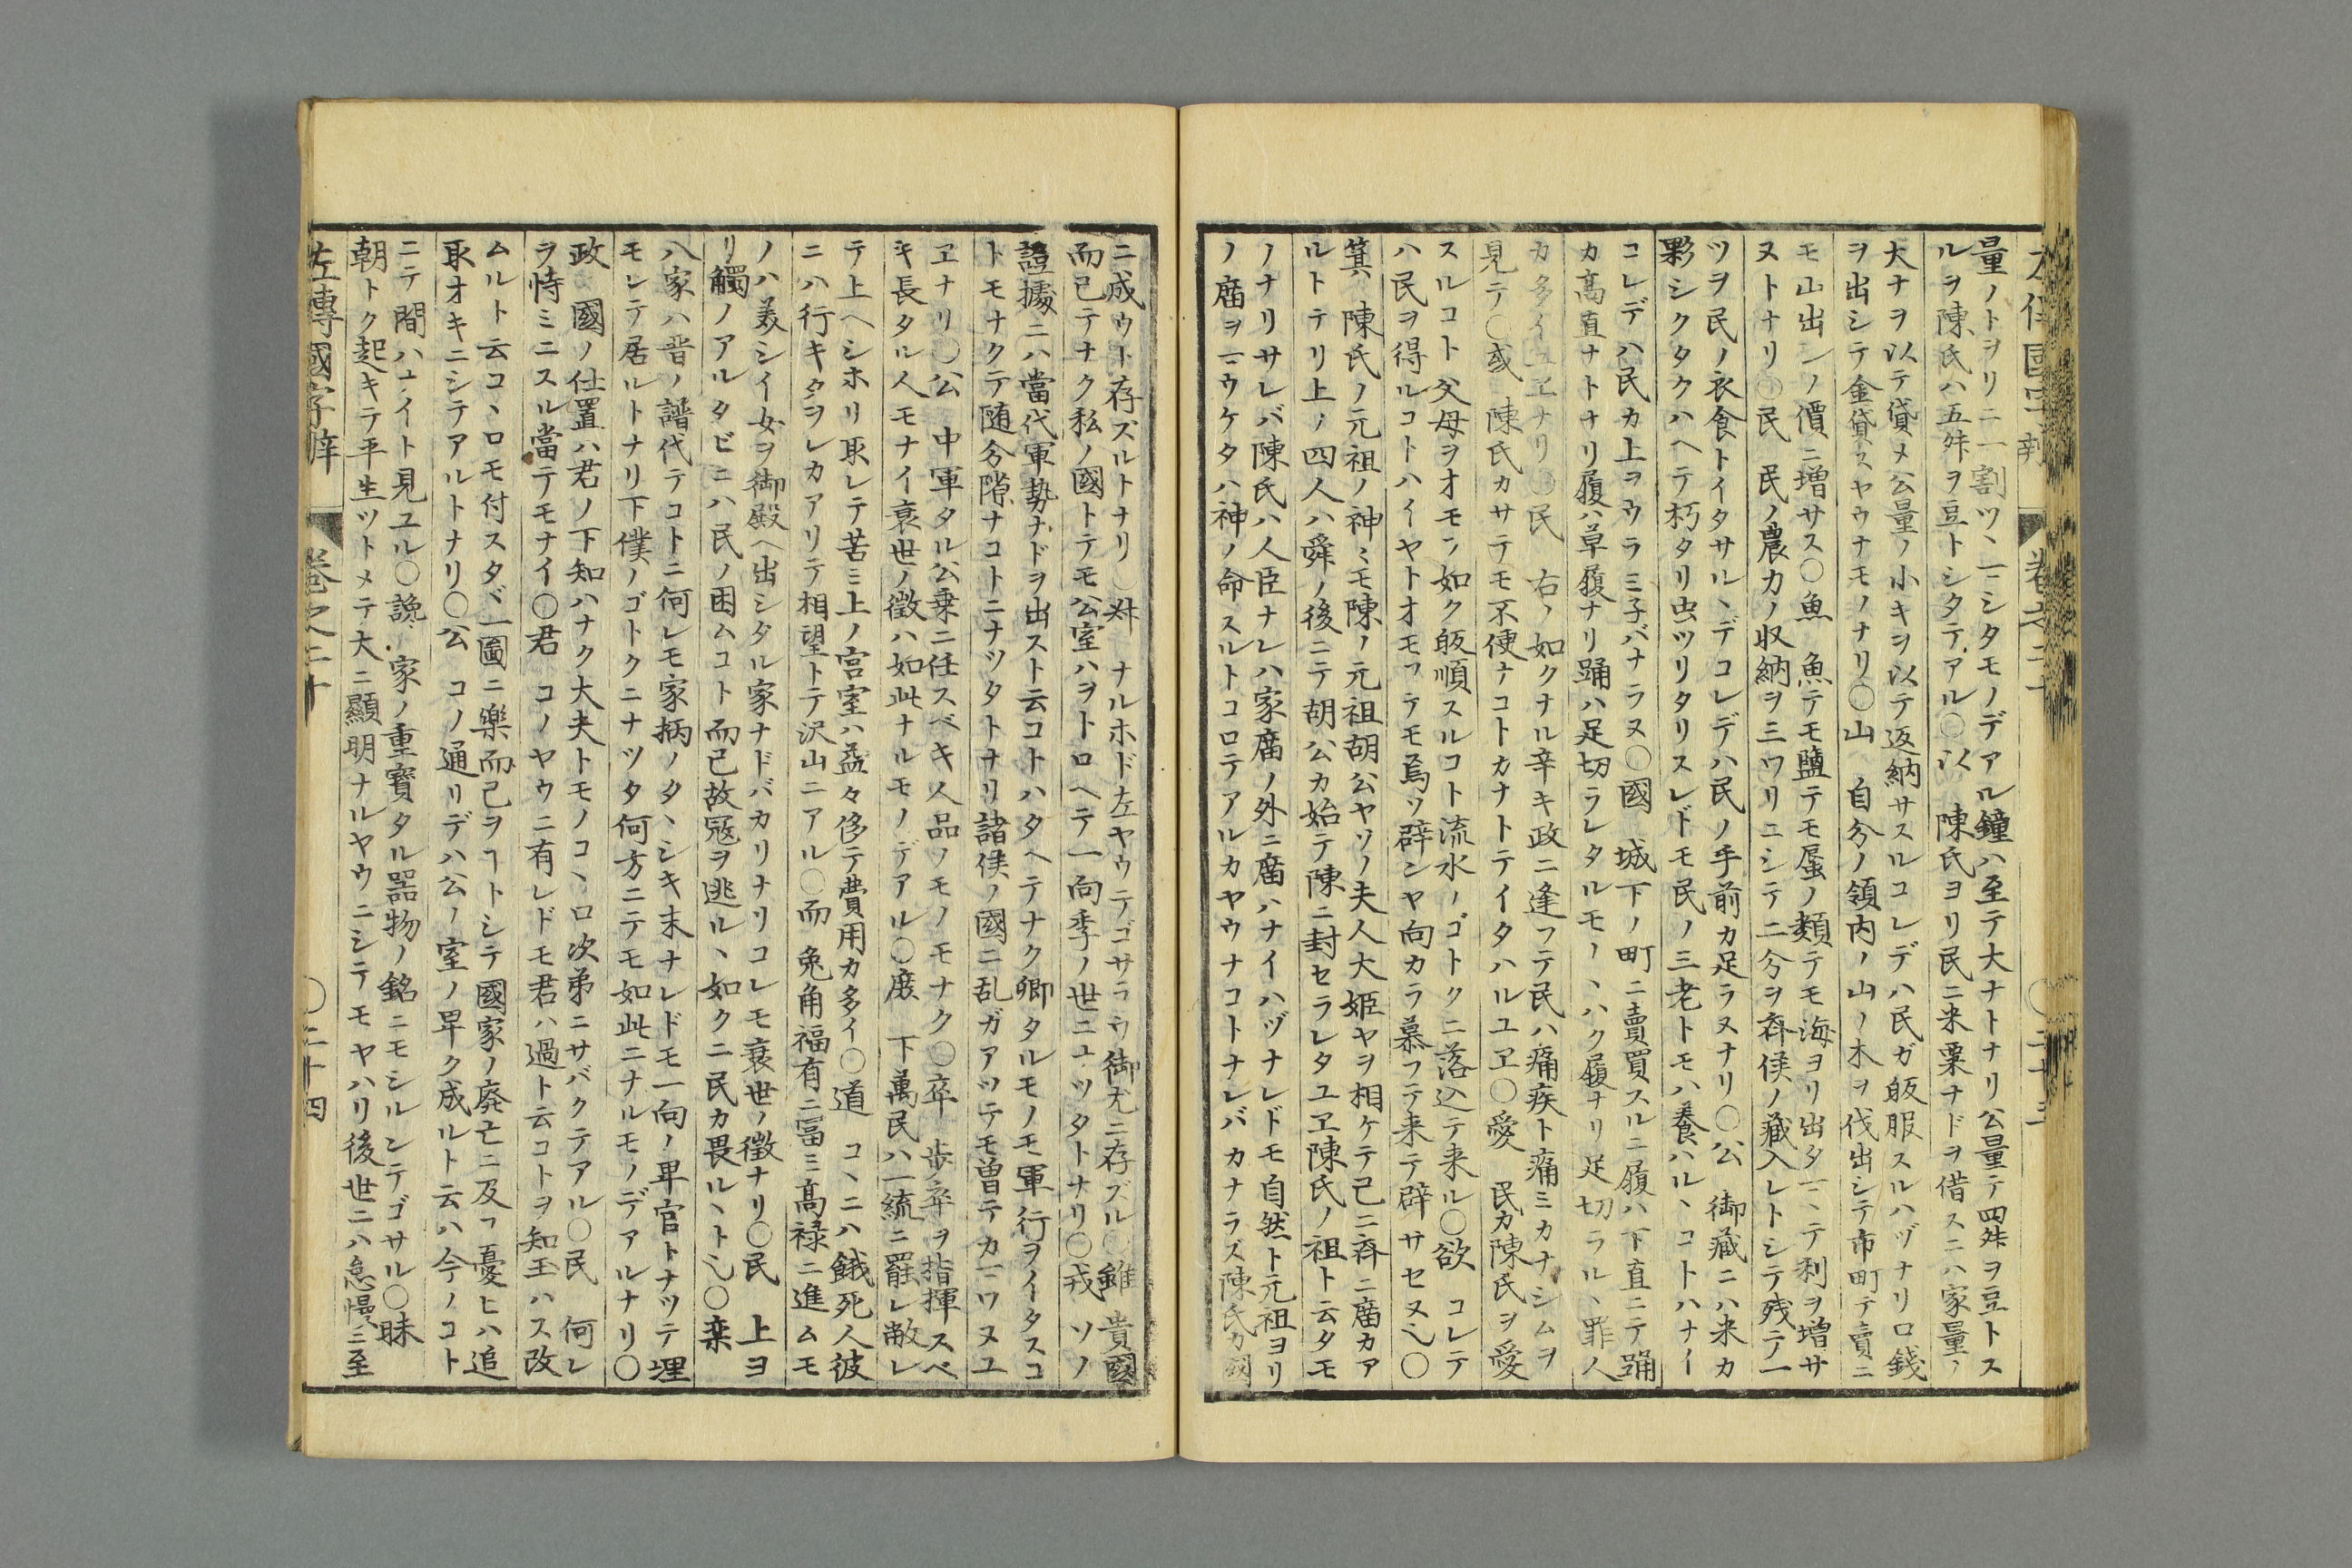 量ノトヲリニ一割ツヽ一ニシタモノデアル鐘ハ至テ大ナトナリ公量テ四舛ヲ豆トス
ルヲ陳氏ハ五舛ヲ豆トシタテアル○以 陳氏ヨリ民ニ米粟ナドヲ借スニハ家量ノ
大ナヲ以テ貸メ公量ノ小キヲ以テ返納サスルコレデハ民ガ皈服スルハヅナリロ錢
ヲ出シテ金貸スヤウナモノナリ○山 自分ノ領内ノ山ノ木ヲ伐出シテ市町テ賣ニ
モ山出シノ價ニ増サス○魚 魚テモ鹽テモ蜃ノ類テモ海ヨリ出タヽテ利ヲ増サ
ヌトナリ○民 民ノ農力ノ収納ヲ三ワリニシテ二分ヲ齊侯ノ藏入レトシテ残テ一
ツヲ民ノ衣食トイタサルヽデコレデハ民ノ手前カ足ラヌナリ○公 御藏ニハ米カ
夥シクタクハヘテ朽タリ虫ツリタリスレドモ民ノ三老トモハ養ハルヽコトハナイ
コレデハ民カ上ヲウラミ子バナラヌ○國 城下ノ町ニ賣買スルニ履ハ下直ニテ踊
カ髙直ナトナリ履ハ草履ナリ踊ハ足切ラレタルモノヽハク履ナリ足切ラルヽ罪人
カ多イユヱナリ○民 右ノ如クナル辛キ政ニ逢フテ民ハ痛疾ト痛ミカナシムヲ
見テ○或 陳氏カサテモ不便ナコトカナトテイタハルユヱ○愛 民カ陳民ヲ愛
スルコト父母ヲオモフ如ク皈順スルコト流水ノゴトクニ落込テ来ル○欲 コレテ
ハ民ヲ得ルコトハイヤトオモフテモ焉ソ辟ンヤ向カラ慕フテ来テ辟サセヌ也○
箕ハ 陳氏ノ元祖ノ神ミモ陳ノ元祖胡公ヤソノ夫人大姫ヤヲ相ケテ已ニ齊ニ廇カア
ルトテリ上ノ四人ハ舜ノ後ニテ胡公カ始テ陳ニ封セラレタユヱ陳氏ノ祖ト云タモ
ノナリサレバ陳氏ハ人臣ナレハ家廇ノ外ニ廇ハナイハヅナレドモ自然ト元祖ヨリ
ノ廇ヲ一ウケタハ神ノ命スルトコロテアルカヤウナコトナレバカナラズ陳氏カ國
ニ成ウト存ズルトナリ○叔 ナルホド左ヤウテゴサラウ御尤ニ存ズル○雖 貴國
而已テナク私ノ國トテモ公室ハヲトロヘテ一向季ノ世ニユツタトナリ○戎 ソノ
證據ニハ當代軍勢ナドヲ出スト云コトハタヘテナク卿タルモノモ軍行ヲイタスコ
トモナクテ随分隙ナコトニナツタトナリ諸侯ノ國ニ乱ガアツテモ曽テカマワヌユ
ヱナリ○公 中軍タル公乗ニ任スベキ人品ノモノモナク○卒 歩卒ヲ指揮スベ
キ長タル人モナイ衰世ノ徴ハ如此ナルモノデアル○庶 下萬民ハ一統ニ罷レ敝レ
テ上ヘシホリ取レテ苦ミ上ノ宮室ハ益々侈テ費用カ多イ○道 コヽニハ餓死人彼
ニハ行キタヲレカアリテ相望トテ沢山ニアル○而 兔角福有ニ富ミ髙禄ニ進ムモ
ノハ美シイ女ヲ御殿ヘ出シタル家ナドバカリナリコレモ衰世ノ徴ナリ○民 上ヨ
リ觸ノアルタビニハ民ノ困ムコト而已故冦ヲ逃ルヽ如クニ民カ畏ルヽト也○栾
八家ハ晋ノ譜代テコトニ何レモ家柄ノタヽシキ末ナレドモ一向ノ卑官トナツテ埋
モレテ居ルトナリ下僕ノゴトクニナツタ何方ニテモ如此ニナルモノデアルナリ○
政 國ノ仕置ハ君ノ下知ハナク大夫トモノコヽロ次弟ニサバクテアル○民 何レ
ヲ恃ミニスル當テモナイ○君 コノヤウニ有レドモ君ハ過ト云コトヲ知玉ハス改
ムルト云コヽロモ付スタヾ一圖ニ樂而已ヲヿトシテ國家ノ廃亡ニ及フ憂ヒハ追
取オキニシテアルトナリ○公 コノ通リデハ公ノ室ノ早ク成ルト云ハ今ノコト
ニテ間ハユイト見ユル○讒 家ノ重寳タル噐物ノ銘ニモシルシテゴサル○昧
朝トク起キテ平生ツトメテ大ニ顯明ナルヤウニシテモヤハリ後世ニハ怠慢ニ至
左傳國字辯 巻之二十 ○二十四